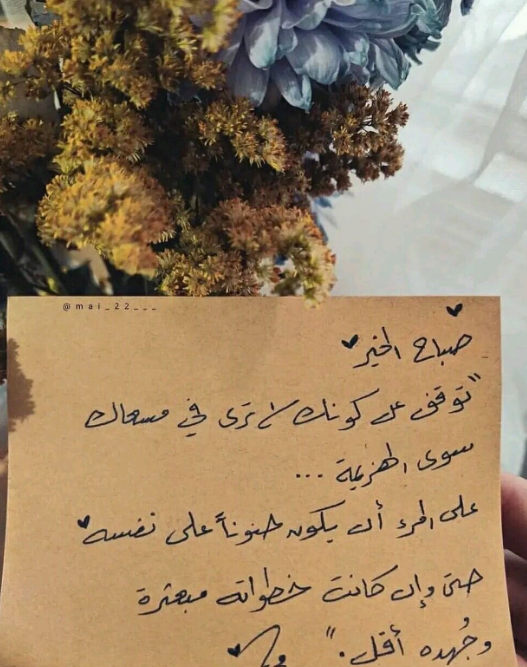 @mai_22___
صباح الخير
"توقف عن كونك لا ترى في مسعاك
سوى الهزيمة ...
على المرء أن يكون حنوناً على نفسه
حتى وإن كانت خطواته مبعثرة
وجُهده أقل."